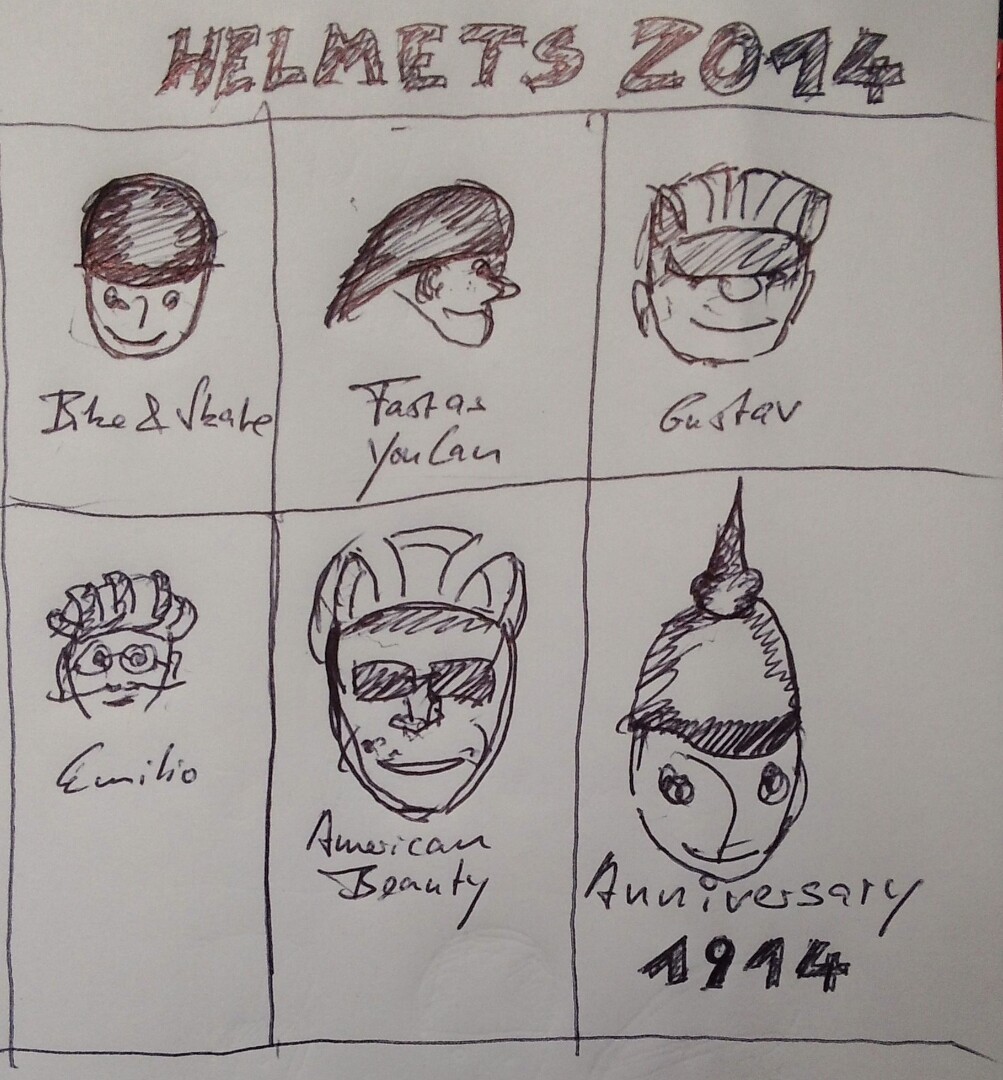 HELMETS 2014
Bike & Skate
Fast as
You Can
Gustav
Emilio
American
Beauty
Anniversary
1914